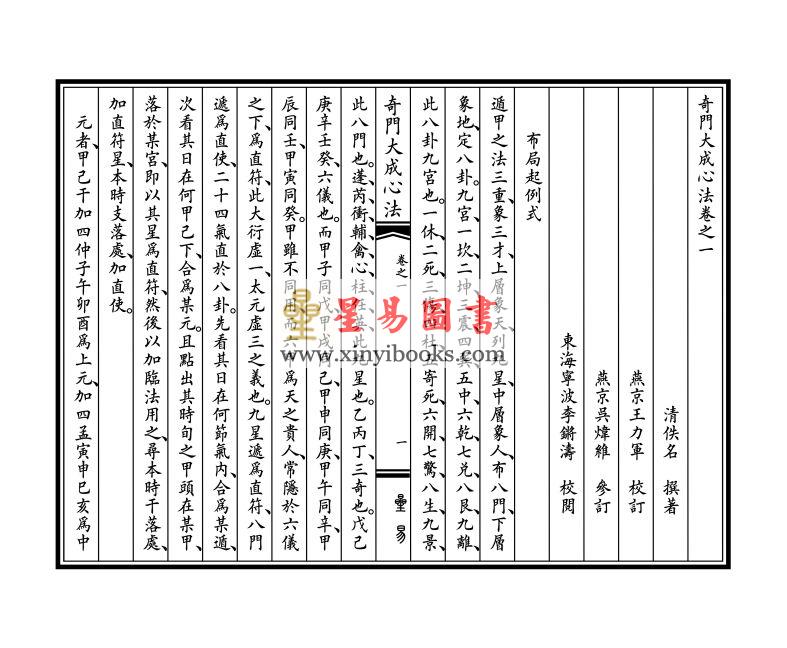 奇門大成心法卷之一
清佚名 撰著
燕京王力軍 校訂
燕京吳煒維 參訂
東海寧波李鏘濤 校閱
布局起例式
遁甲之法三重、象三才、上層象天列九星、中層象人、布八門、下層
象地、定八卦。九宮、一坎、二坤、三震、四巽、五中、六乾、七兌、八艮、九離、
此八卦九宮也。一休、二死、三傷、四杜、五寄死、六開、七驚、八生、九景、
奇門大成心法
卷之一
一
星易
此八門也。蓬、芮、衝、輔、禽、心、柱、任、英、此九星也。乙丙丁、三奇也。戊己
庚辛壬癸、六儀也。而甲子同戊、甲戌同己、甲申同庚、甲午同辛、甲
辰同壬、甲寅同癸。甲雖不同用、而六甲為天之貴人、常隱於六儀
之下、為直符、此大衍虛一、太元虛三之義也。九星遞為直符、八門
遞為直使、二十四氣直於八卦。先看其日在何節氣內、合為某遁、
次看其日在何甲己下、合為某元。且點出其時旬之甲頭在某甲、
落於某宮、即以其星為直符、然後以加臨法用之、尋本時干落處、
加直符星、本時支落處、加直使。
元者、甲己干加四仲子午卯酉為上元、加四孟寅申巳亥為中
星易圖書
www.xinyibooks.com